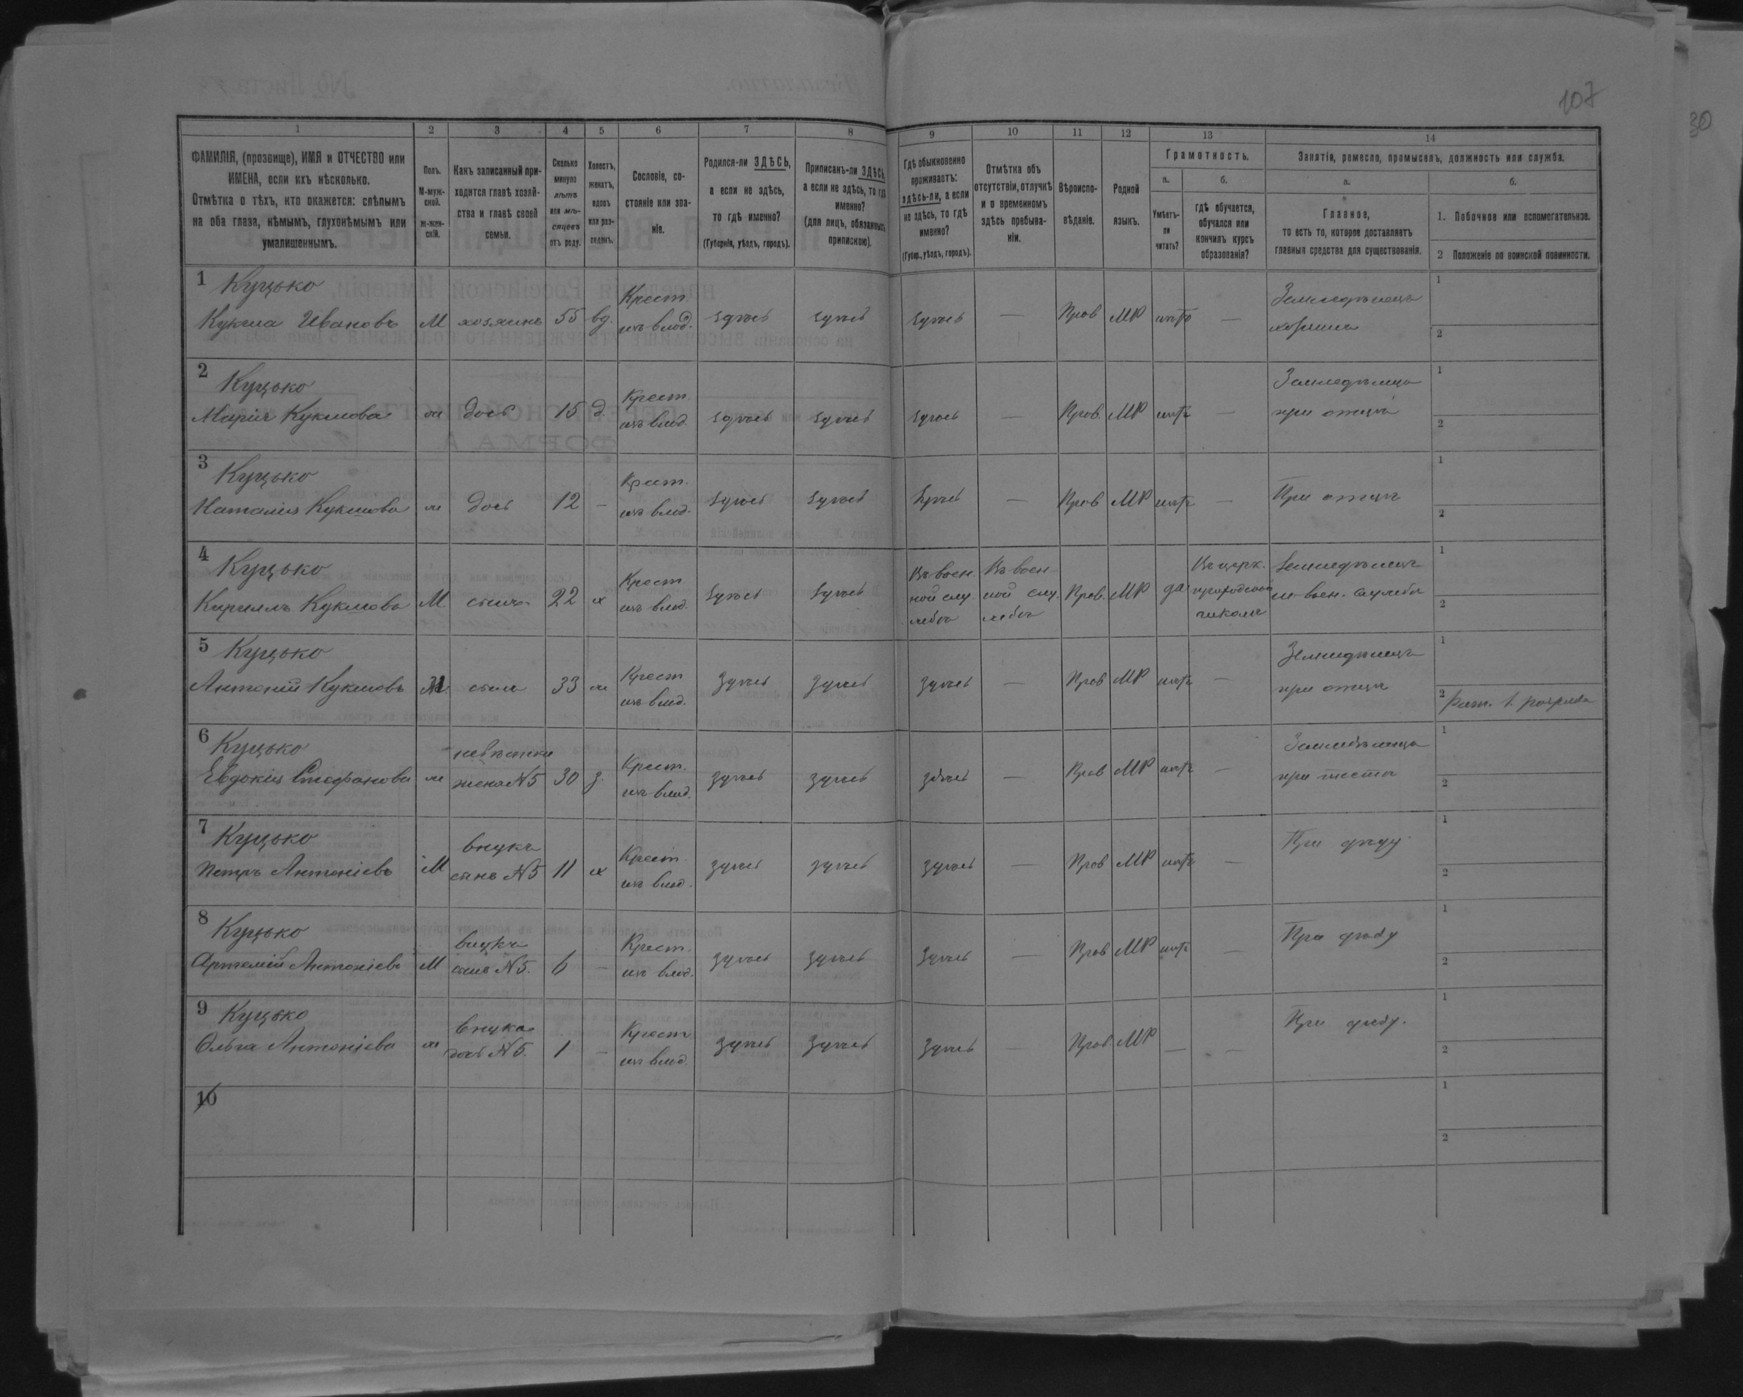 107
30
1 2 3 4 5 6 7 8 9 10 11 12 13 14
ФАМИЛІЯ, (прозвище), ИМЯ и ОТЧЕСТВО или
ИМЕНА, если ихъ нѣсколько.
Отмѣтка о тѣхъ, кто окажется: слѣпымъ
на оба глаза, нѣмымъ, глухонѣмымъ или
умалишеннымъ.
Полъ.
М-муж-
ской.
ж-жен-
скій.
Какъ записанный при-
ходится главѣ хозяй-
ства и главѣ своей
семьи.
Сколько
минуло
лѣтъ
или мѣ-
сяцевъ
отъ роду.
Холостъ,
женатъ,
вдовъ
или раз-
веденъ.
Сословіе, со-
стояніе или зва-
ніе.
Родился-ли ЗДѢСЬ,
а если не здѣсь,
то гдѣ именно?
(Губернія, уѣздъ, городъ).
Приписанъ-ли ЗДѢСЬ,
а если не здѣсь, то гдѣ
именно?
(для лицъ, обязанныхъ
припискою).
Гдѣ обыкновенно
проживаетъ:
здѣсь-ли, а если
не здѣсь, то гдѣ
именно?
(Губер., уѣздъ, городъ).
Отмѣтка объ
отсутствіи, отлучкѣ
и о временномъ
здѣсь пребыва-
ніи.
Вѣроиспо-
вѣданіе.
Родной
языкъ.
Грамотность.
а.
Умѣетъ-
ли
читать?
б.
гдѣ обучается,
обучался или
кончилъ курсъ
образованія?
Занятіе, ремесло, промыселъ, должность или служба.
а.
Главное,
то есть то, которое доставляетъ
главныя средства для существованія.
б.
1. Побочное или вспомогательное.
2 Положеніе по воинской повинности.
1 Куцько Крест. Земледѣлецъ 1
Кукша Ивановъ М хозяинъ 55 вд. изъ влад. здѣсь здѣсь здѣсь — Прав МР нѣтъ — хозяинъ 2
2 Куцько Крест. Земледѣлица 1
Марія Кукшова ж дочь 15 д. изъ влад. здѣсь здѣсь здѣсь — Прав. МР нѣтъ — при отцѣ 2
3 Куцько Крест. 1
Наталія Кукшова ж дочь 12 – изъ влад. здѣсь здѣсь здѣсь — Прав МР нѣтъ — При отцѣ 2
4 Куцько Крест Въ воен- Въ воен- Въ церк. Земледѣлецъ 1
Кириллъ Кукшовъ М сынъ 22 х изъ влад. здѣсь здѣсь ной слу- ной слу- Прав. МР да приходской воен. служба 2
жбѣ жбѣ школѣ
5 Куцько Крест Земледѣлецъ 1
Антоній Кукшовъ М сынъ 33 ж изъ влад. здѣсь здѣсь здѣсь — Прав МР нѣтъ — при отцѣ 2 Рат. 1. разряда
6 Куцько невѣстка Крест. Земледѣлица 1
Евдокія Стефанова ж жена №5 30 з. изъ влад. здѣсь здѣсь здѣсь — Прав МР нѣтъ — при 2
7 Куцько внукъ Крест. При дѣду 1
Петръ Антоніевъ М сынъ №5 11 х изъ влад. здѣсь здѣсь здѣсь — Прав МР нѣтъ — 2
8 Куцько внукъ Крест. При дѣду 1
Артемій Антоніевъ М сынъ №5. 6 – изъ влад. здѣсь здѣсь здѣсь — Прав МР нѣтъ — 2
9 Куцько внучка Крест При дѣду. 1
Ольга Антоніева ж дочь №5. 1 – изъ влад здѣсь здѣсь здѣсь — Прав МР — — 2
10 1
2